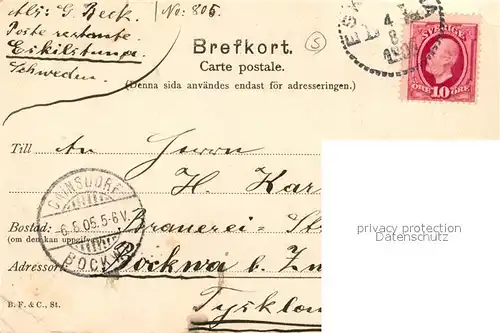 Abs: G. Beck. No: 805.
Poste restante
Eskilstuna.
Schweden.
Brefkort.
Carte postale.
(Denna sida användes endast för adresseringen.)
5
4
8
SVERIGE
10
ÖRE ÖRE
Till An Herrn
H. Kar
Bostad: Brauerei-St
(om den kan uppgifve
Adressort: Bockwa b. Zw
Tyskland
CAINSDORF
-6.8.05.5-6V.
BOCKWA
B. F. & C., St.
privacy protection
Datenschutz